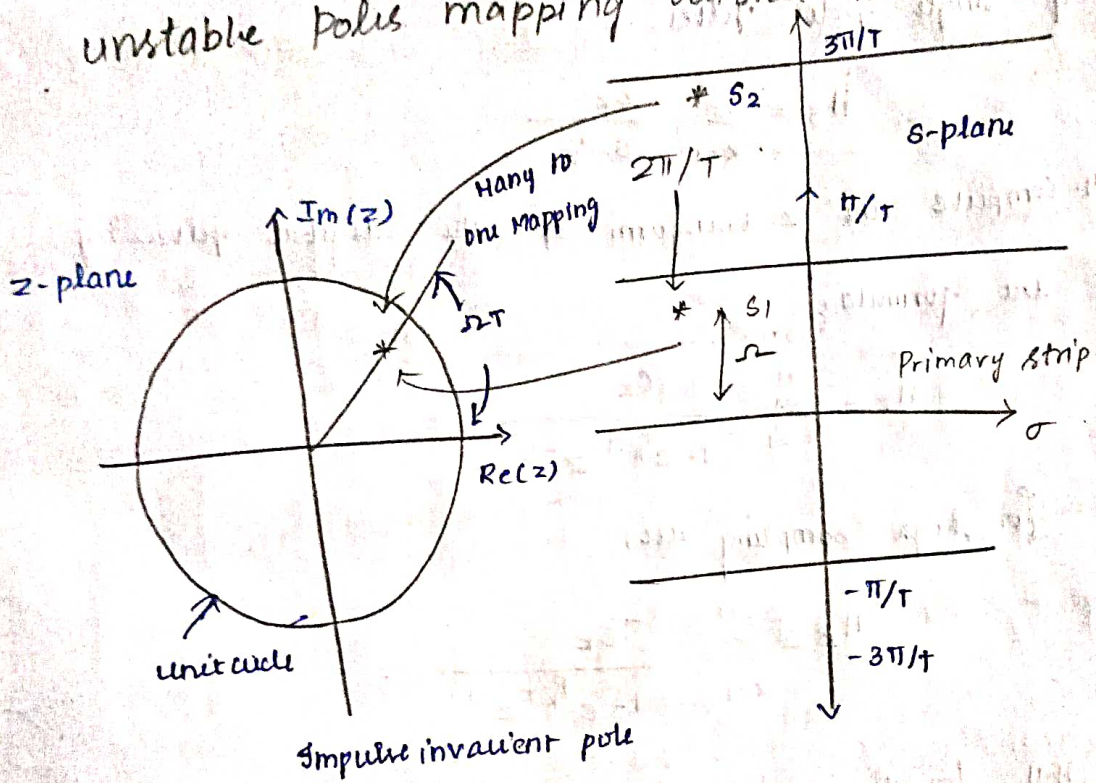 unstable poles mapping
3π/T
* S2
s-plane
Many to
one Mapping
2π/T
π/T
Im(z)
z-plane
ΩT
* S1
Ω
Primary strip
σ
Re(z)
-π/T
-3π/T
unit circle
Impulse invarient pole